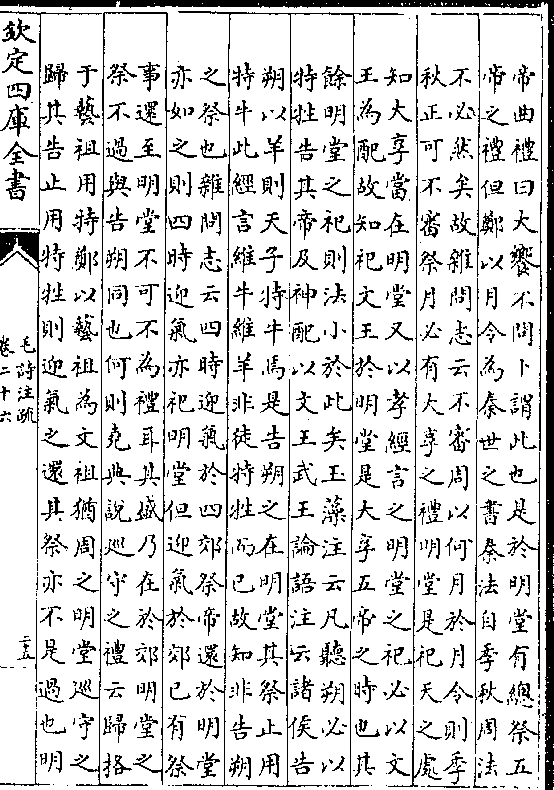 帝曲禮曰大饗不問卜謂此也是於明堂有總祭五
帝之禮但鄭以月令為秦世之書秦法自季秋周法
不必然矣故雜問志云不審周以何月於月令則季
秋正可不審祭月必有大享之禮明堂是祀天之處
知大享當在明堂又以孝經言之明堂之祀必以文
王為配故知祀文王於明堂是大享五帝之時也其
餘明堂之祀則法小於此矣玉藻注云凡聽朔必以
特牲告其帝及神配以文王武王論語注云諸侯告
朔以羊則天子特牛焉是告朔之在明堂其祭止用
特牛此經言維牛維羊非徒特牲而已故知非告朔
之祭也雜問志云四時迎氣於四郊祭帝還於明堂
亦如之則四時迎氣亦祀明堂但迎氣於郊已有祭
事還至明堂不可不為禮耳其盛乃在於郊明堂之
祭不過與告朔同也何則堯典說巡守之禮云歸格
于藝祖用特鄭以藝祖為文祖猶周之明堂巡守之
歸其告止用特牲則迎氣之還其祭亦不是過也明
欽定四庫全書
毛詩注疏
卷二十六
二五